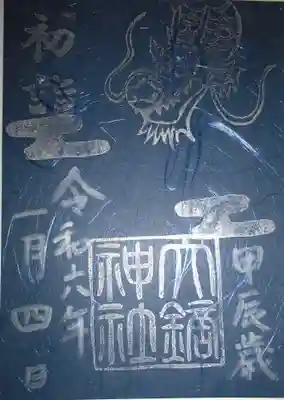 甲辰歳
大鏑
神社
初詣
令和六年
一月四日